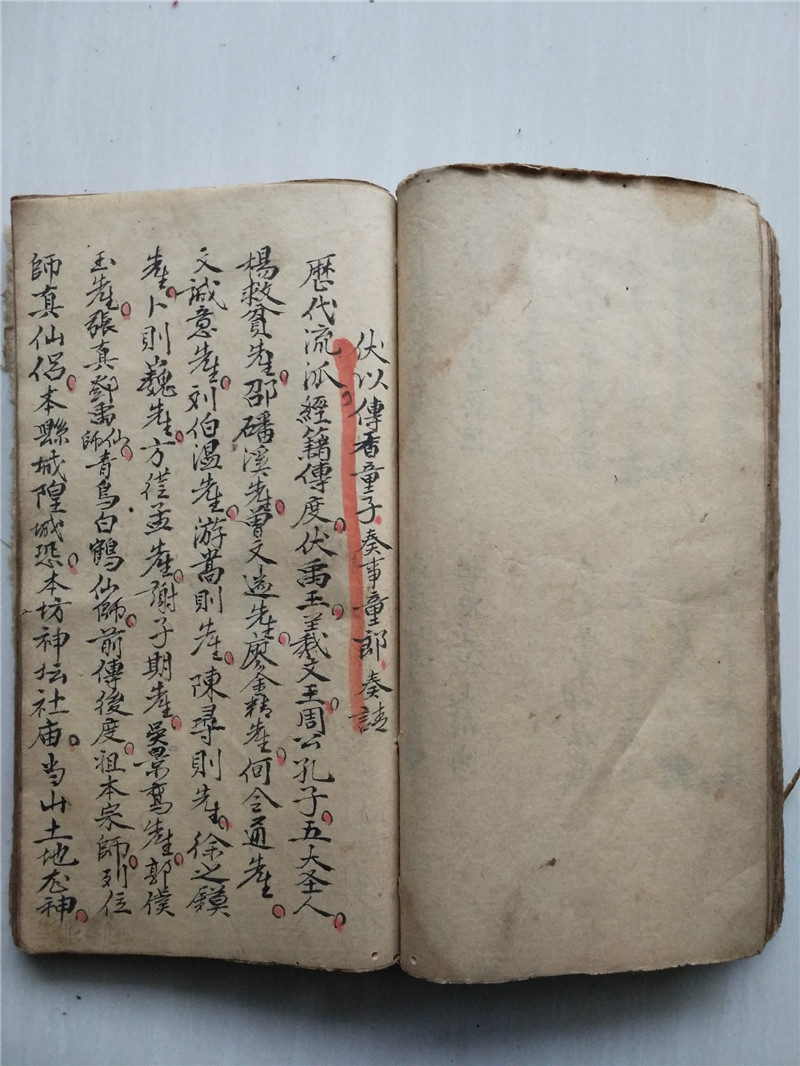 伏以傳香童子奏事童郎奏請
歷代流派經籍傳度伏禹王羲文王周公孔子五大圣人
楊救貧先生邵磻溪先生曾文遄先生廖金精先生何令通先生
文誠意先生刘伯温先生游嵩則先生陳尋則先生徐之鏌
先生卜則巍先生方從孟先生謝子期先生吳景鸾先生郭僕
玉先生張真鄧禹仙師青烏白鶴仙師前傳後度祖本宗師列位
師真仙侣本縣城隍城恐本坊神坛社庙当山土地龙神